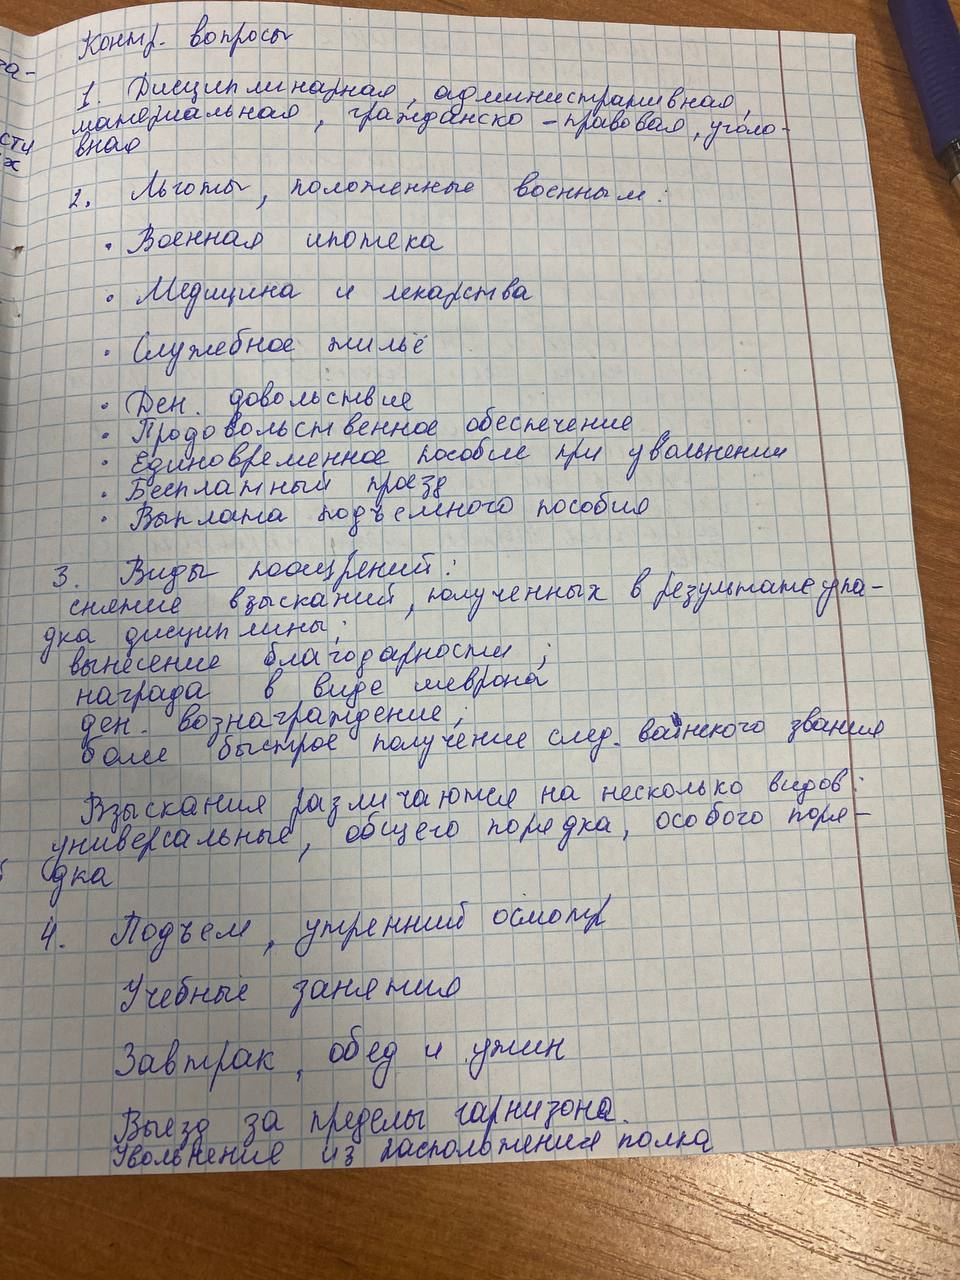 Контр. вопросы
1. Дисциплинарная, административная,
материальная, гражданско-правовая, уголо-
вная
2. Льготы, положенные военным:
• Военная ипотека
• Медицина и лекарства
• Служебное жильё
• Ден. довольствие
• Продовольственное обеспечение
• Единовременное пособие при увольнении
• Бесплатный проезд
• Выплата подъемного пособия
3. Виды поощрений:
снятие взысканий, полученных в результате упа-
дка дисциплины;
вынесение благодарности;
награда в виде шеврона
ден. вознаграждение;
более быстрое получение след. воинского звания
Взыскания различаются на несколько видов:
универсальные, общего порядка, особого поря-
дка
4. Подъем, утренний осмотр
Учебные занятия
Завтрак, обед и ужин
Выезд за пределы гарнизона.
Увольнение из расположения полка